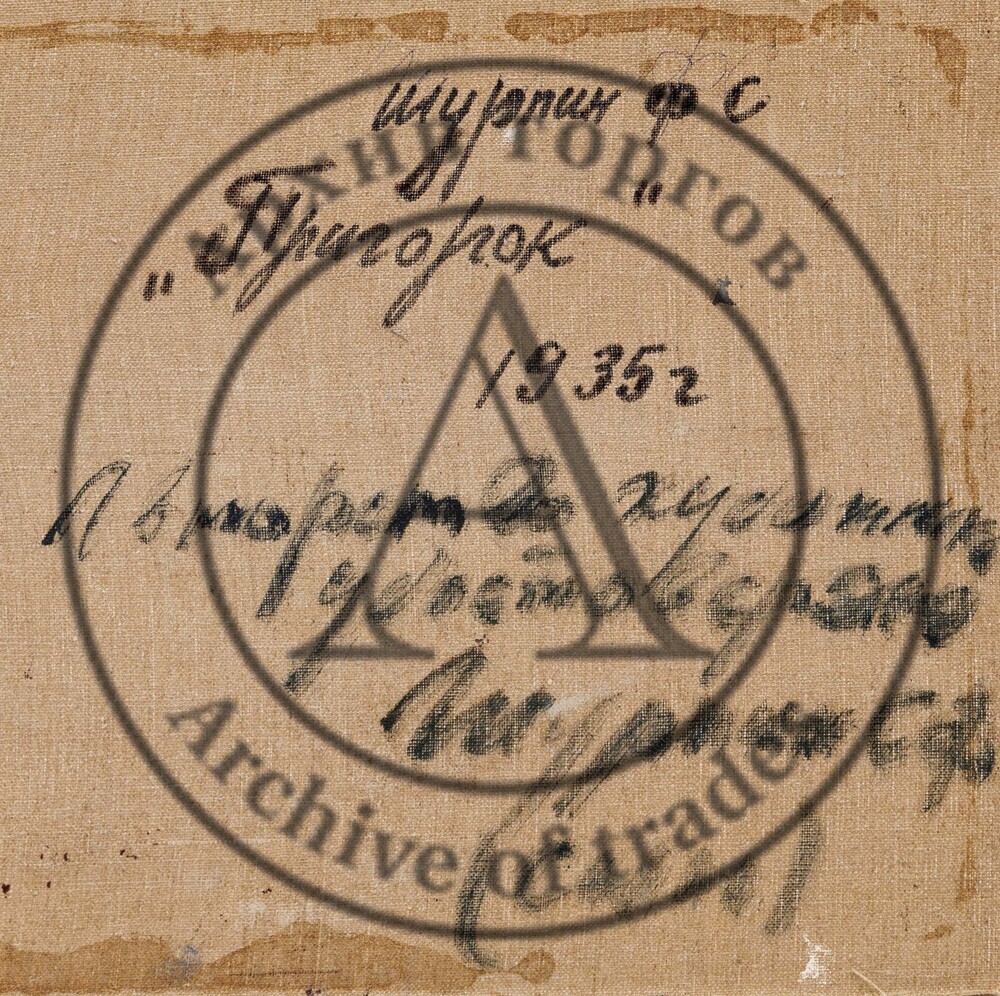 Шурпин Ф С
„Пригорок"
1935г
Авторство художника
удостоверяю
Шурпин
(сын)
Архив торгов
Archive of trades
А